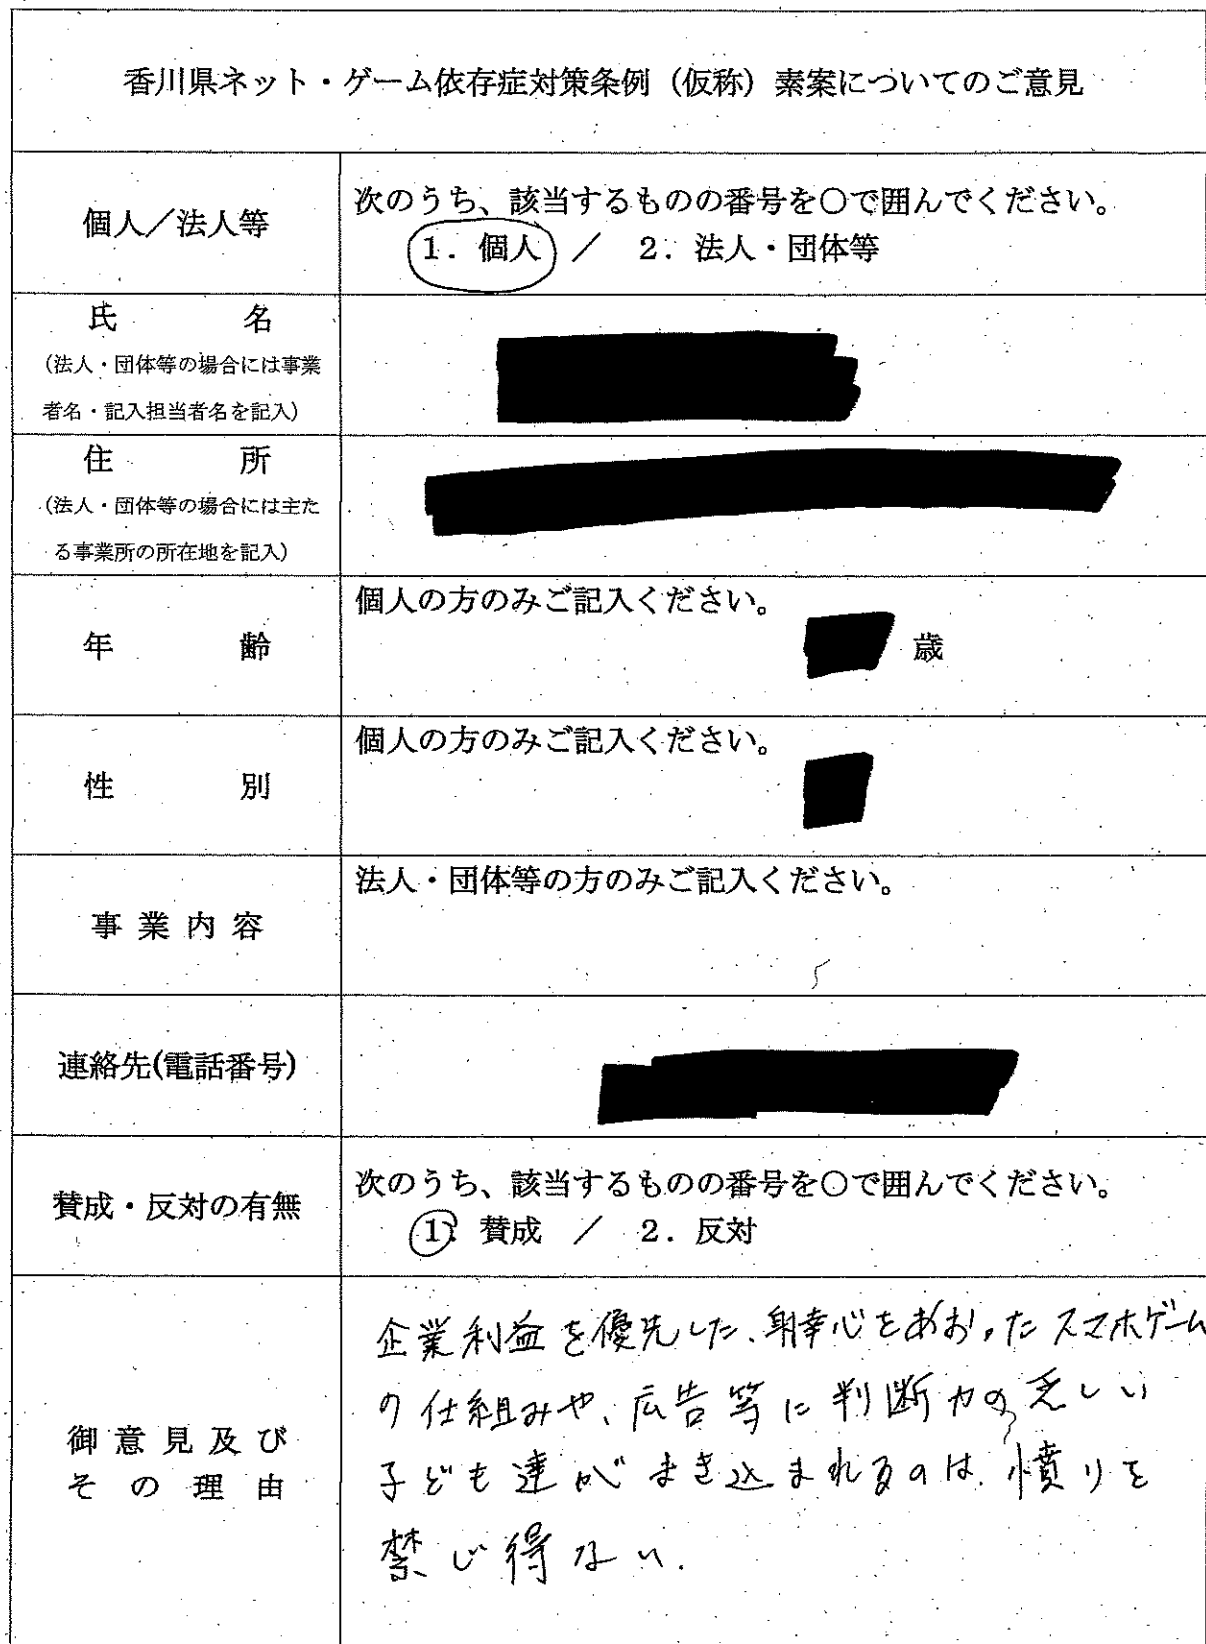 香川県ネット・ゲーム依存症対策条例（仮称）素案についてのご意見
個人／法人等
次のうち、該当するものの番号を○で囲んでください。
1．個人 ／ 2．法人・団体等
氏 名
（法人・団体等の場合には事業
者名・記入担当者名を記入）
住 所
（法人・団体等の場合には主た
る事業所の所在地を記入）
年 齢
個人の方のみご記入ください。
歳
性 別
個人の方のみご記入ください。
事業内容
法人・団体等の方のみご記入ください。
連絡先(電話番号)
賛成・反対の有無
次のうち、該当するものの番号を○で囲んでください。
1．賛成 ／ 2．反対
御意見及び
その理由
企業利益を優先した、射幸心をあおった スマホゲーム
の仕組みや、広告等に判断力の乏しい
子ども達がまき込まれるのは、憤りを
禁じ得ない.